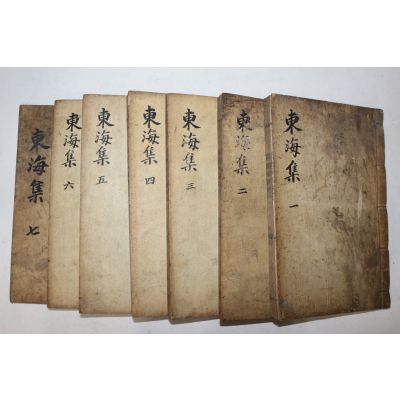 東海集 一
東海集 二
東海集 三
東海集 四
東海集 五
東海集 六
東海集 七